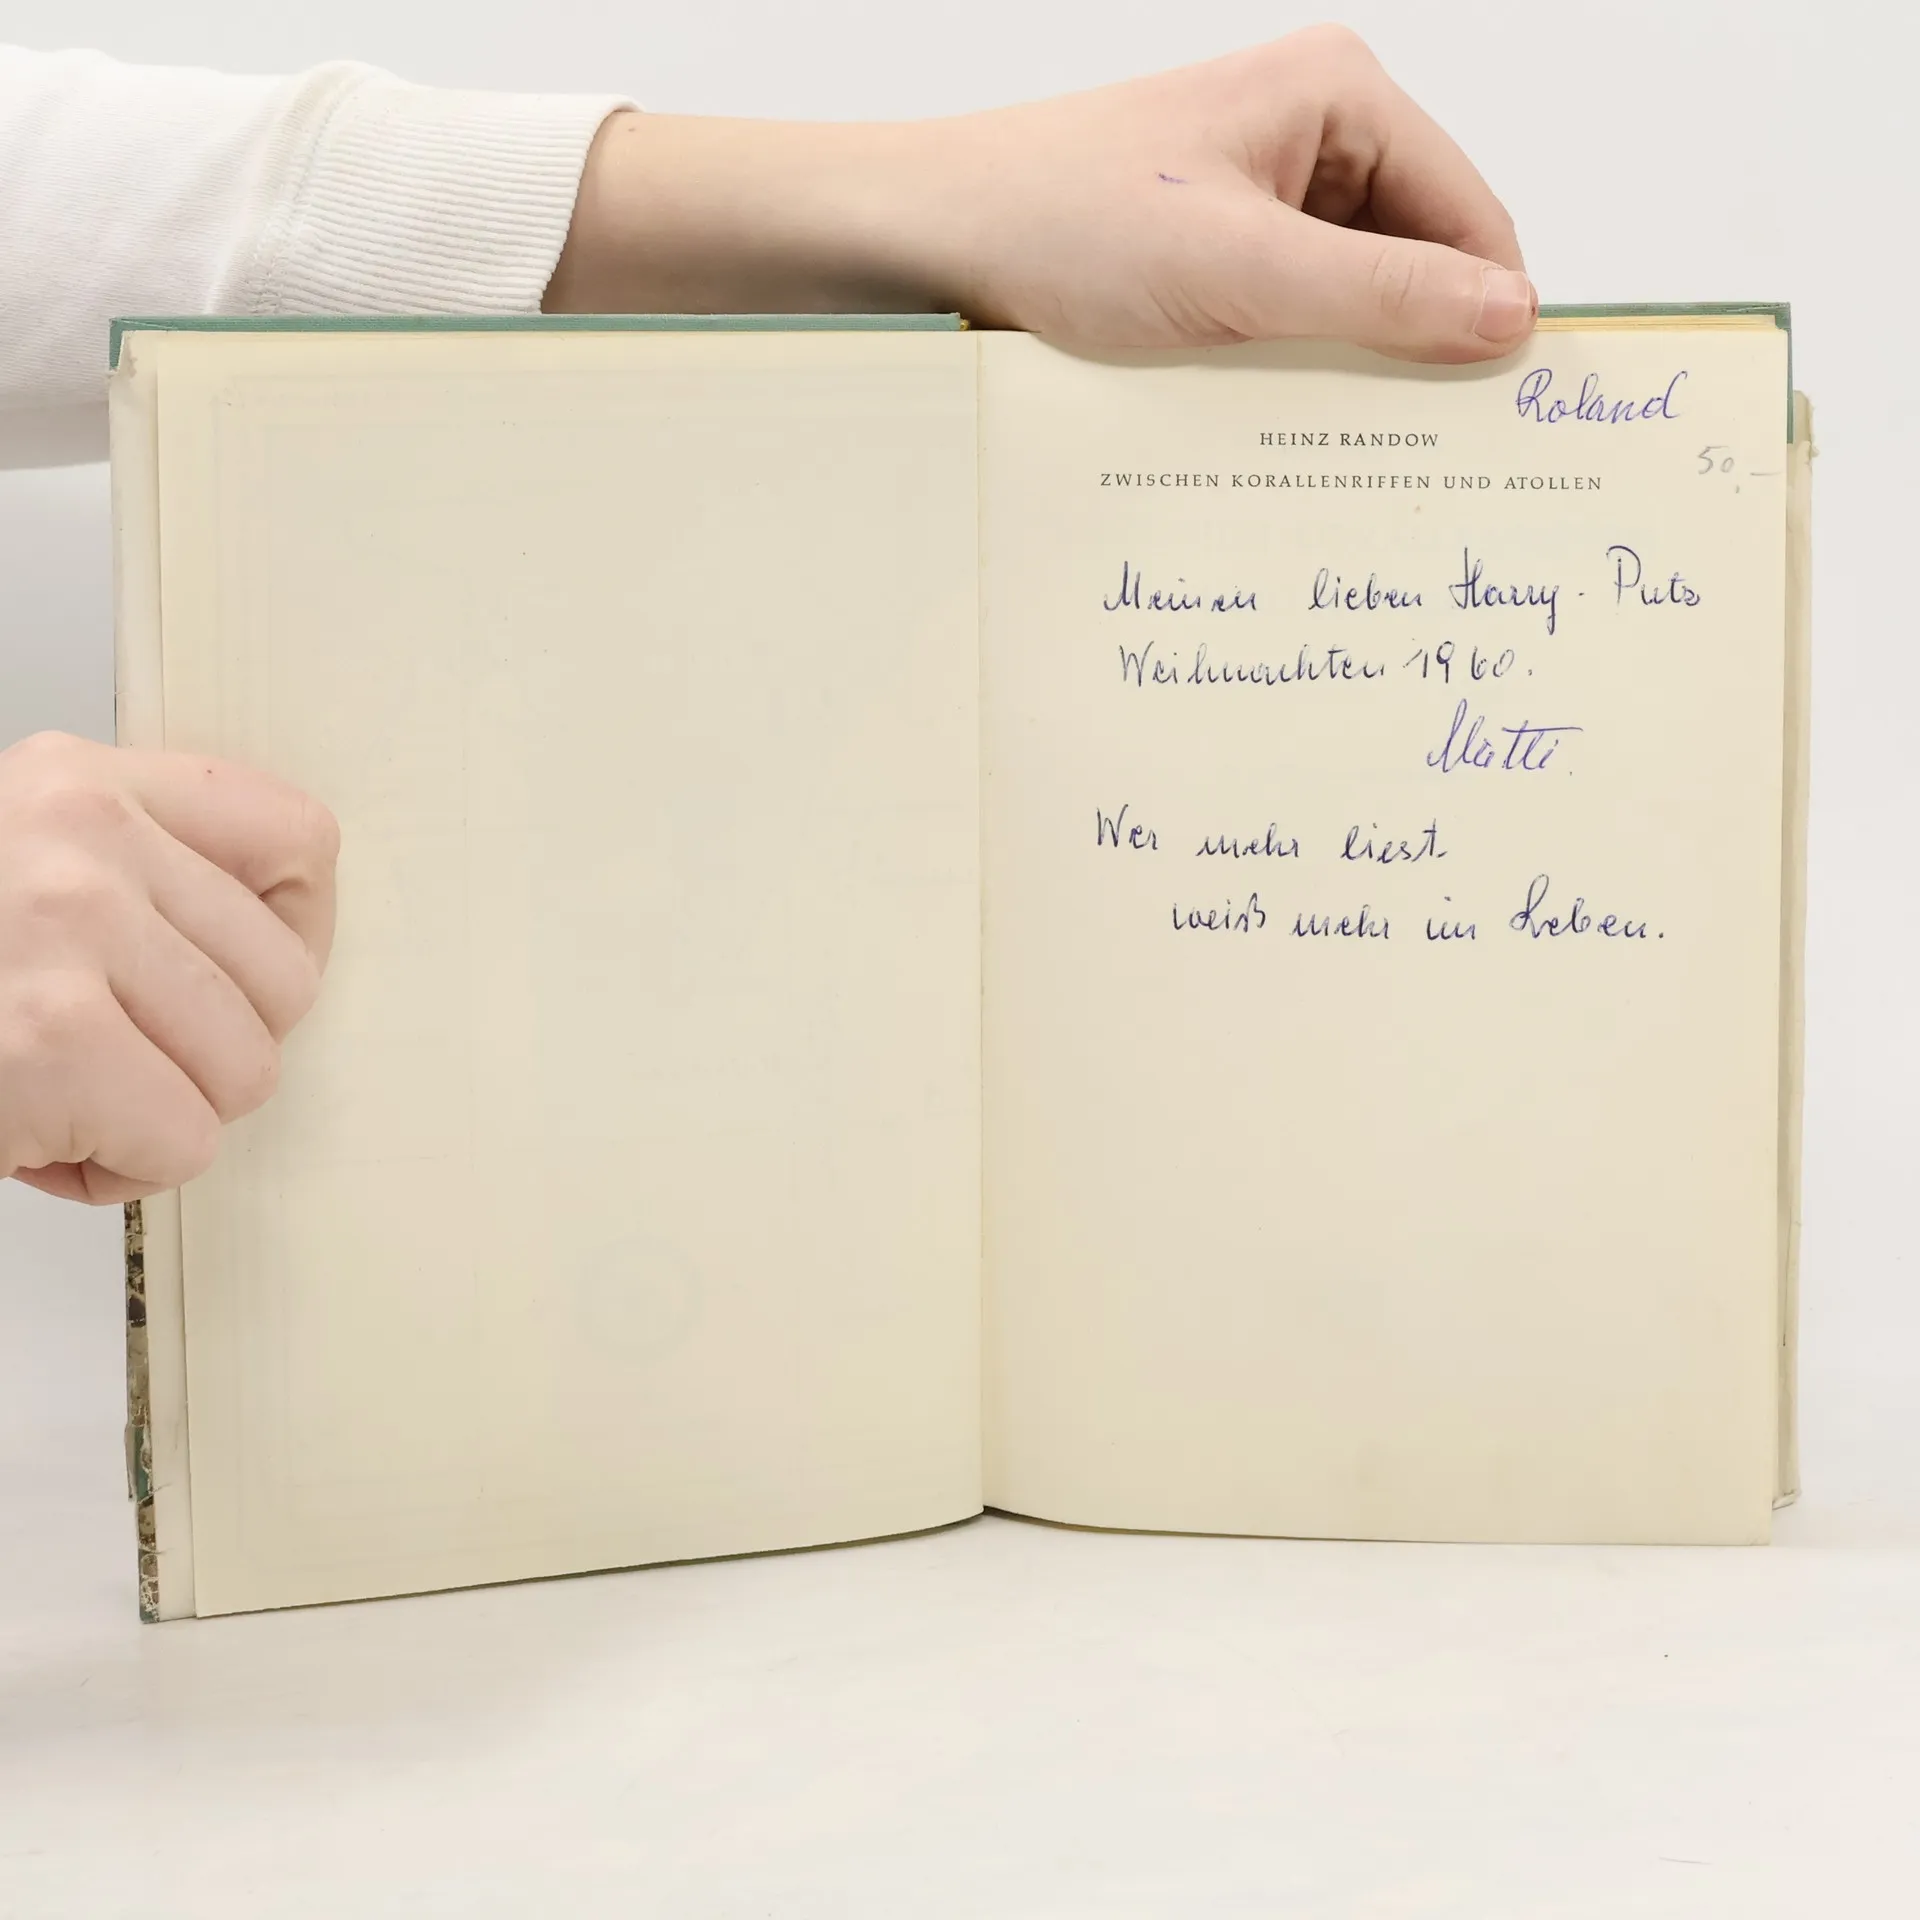 Roland
HEINZ RANDOW
50,—
ZWISCHEN KORALLENRIFFEN UND ATOLLEN
Meinen lieben Harry - Putz
Weihnachten 1960.
Mutti.
Wer mehr liest
weiß mehr im Leben.